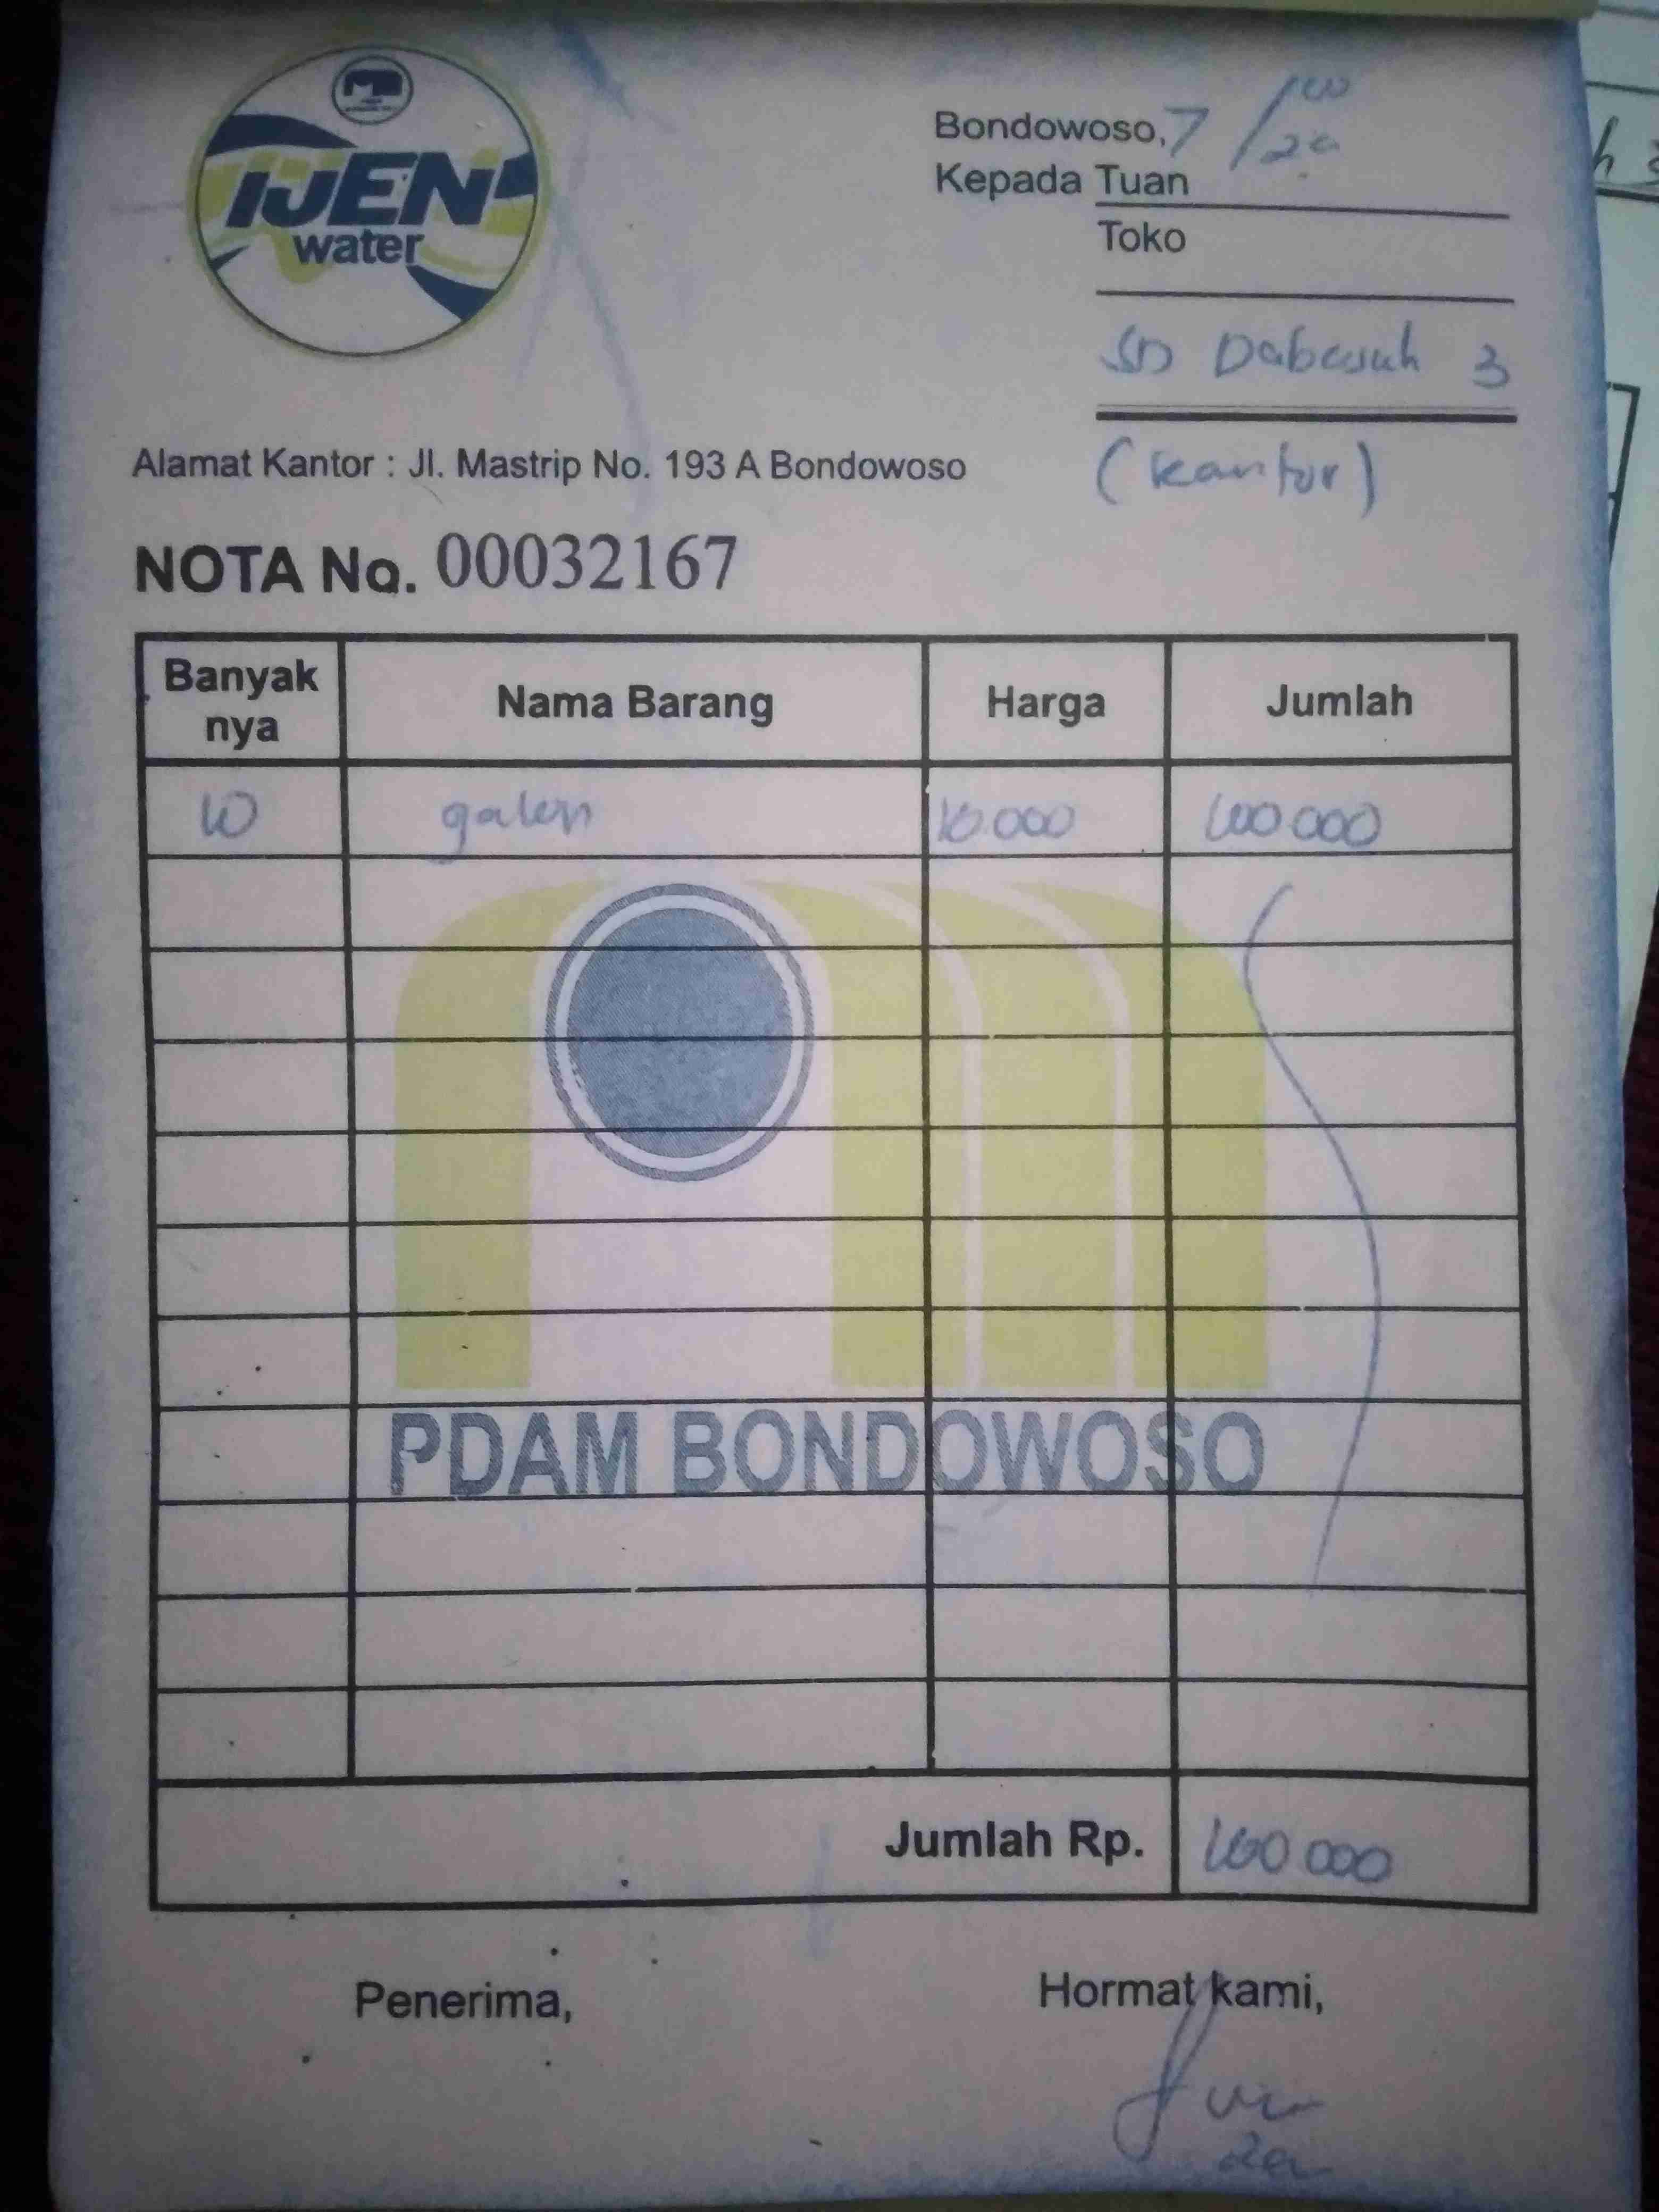 IJEN
water
Bondowoso, 7/10 20
Kepada Tuan
Toko
SD Dabasah 3
(kantor)
Alamat Kantor : Jl. Mastrip No. 193 A Bondowoso
NOTA No. 00032167
Banyak nya Nama Barang Harga Jumlah
10 galon 10.000 100.000
PDAM BONDOWOSO
Jumlah Rp. 100 000
Penerima, Hormat kami,